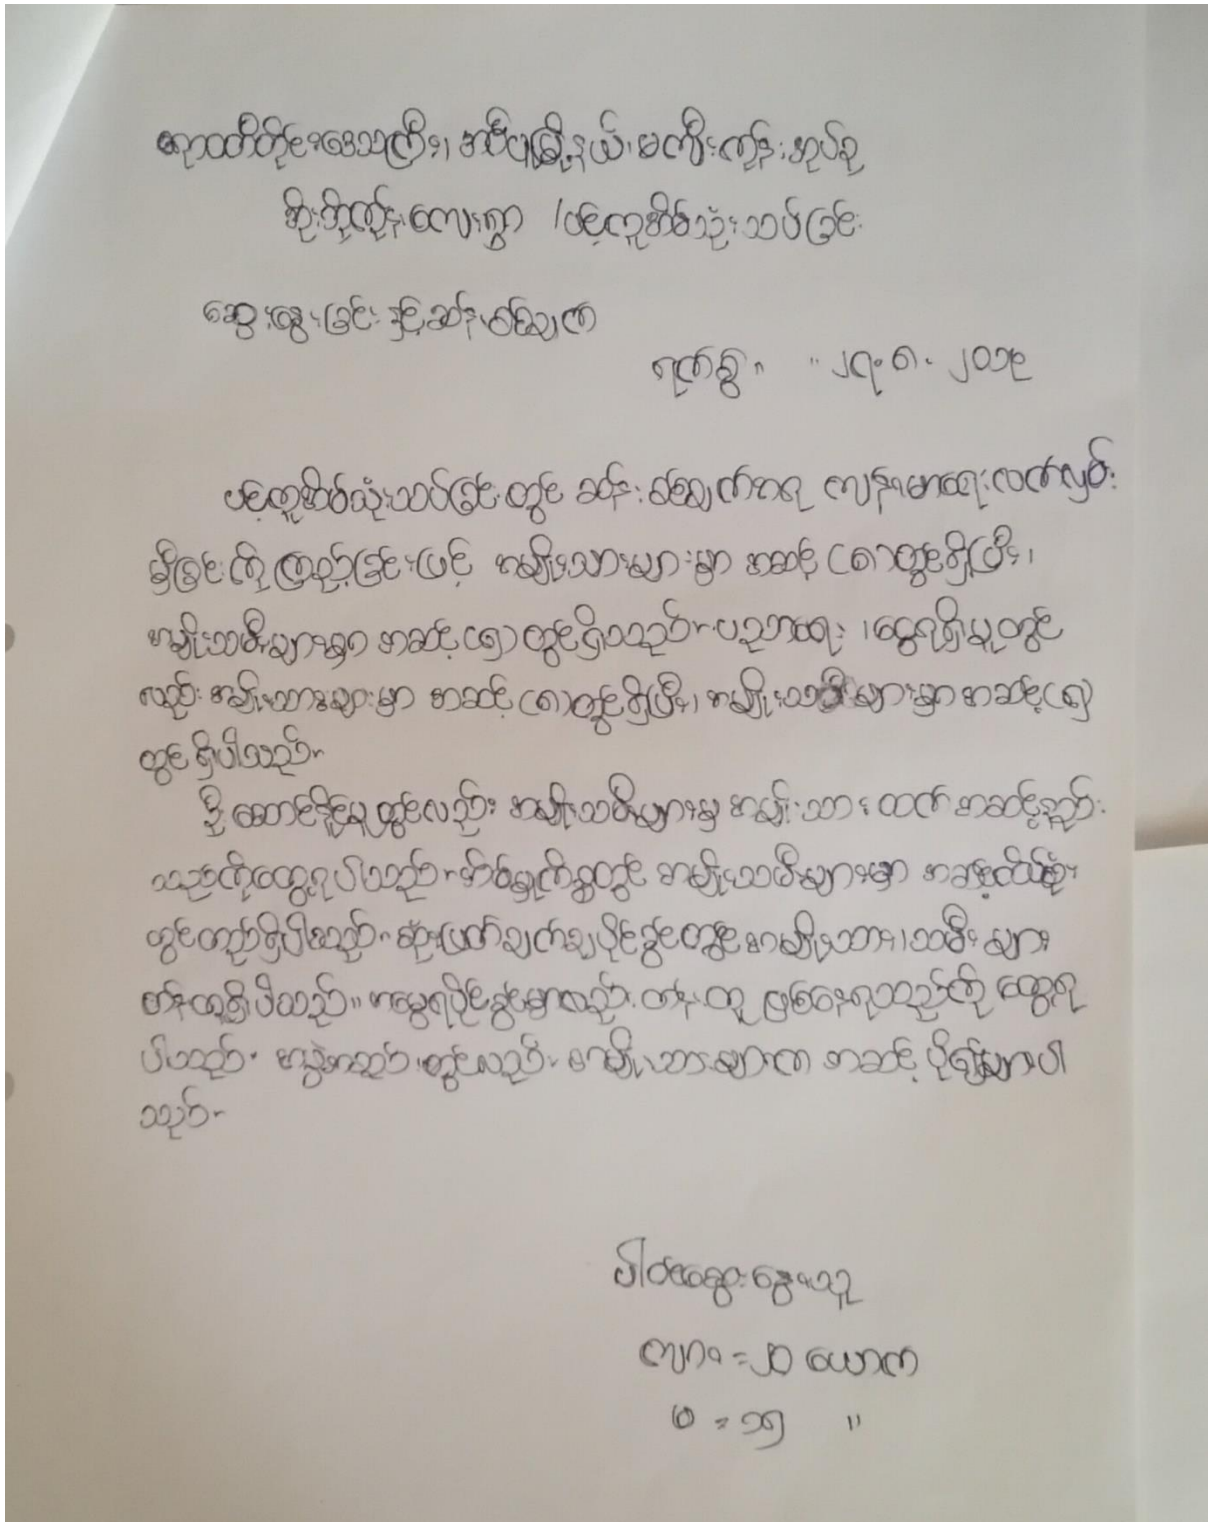 ဧရာဝတီတိုင်းဒေသကြီး၊ အိမ်မဲမြို့နယ်၊ မကျီးကုန်းအုပ်စု
အိုးဘိုကုန်းကျေးရွာ /ပင့်ကူအိမ်သုံးသပ်ခြင်း
ဆွေးနွေးခြင်း နှင့်ဆန်းစစ်ချက်
ရက်စွဲ။ ။ ၂၇.၈. ၂၀၁၉
ပင့်ကူအိမ်သုံးသပ်ခြင်းတွင် ဆန်းစစ်ချက်အရ ကျန်းမာရေးလက်လှမ်း
မှီခြင်းကို ကြည့်ခြင်းဖြင့် အမျိုးသားများမှာ အဆင့် (၈)တွင်ရှိပြီး၊
အမျိုးသမီးများမှာ အဆင့်(၅)တွင်ရှိသည်။ပညာရေး ၊ငွေရရှိမှုတွင်
လည်း အမျိုးသားများမှာ အဆင့် (၈)တွင်ရှိပြီး၊ အမျိုးသမီးများမှာ အဆင့်(၅)
တွင် ရှိပါသည်။
ဦးဆောင်နိုင်မှုတွင်လည်း အမျိုးသမီးများမှ အမျိုးသား ထက် အဆင့်နည်း
သည်ကိုတွေ့ရပါသည်။အိမ်မှုကိစ္စတွင် အမျိုးသမီးများမှာ အဆင့်ထိပ်ဆုံး
တွင်တည်ရှိပါသည်။ဆုံးဖြတ်ချက်ချပိုင်ခွင့်တွင် အမျိုးသား၊သမီး များ
တန်းတူရှိပါသည်။ အမွေရပိုင်ခွင့်မှာလည်း တန်းတူ ဖြစ်နေရသည်ကို တွေ့ရ
ပါသည်။ အဖွဲ့အစည်းတွင်လည်း အမျိုးသားများက အဆင့် ပို၍များပါ
သည်။
ပါဝင်ဆွေးနွေးသူ
ကျား = ၂၀ ယောက်
မ = ၁၅ "